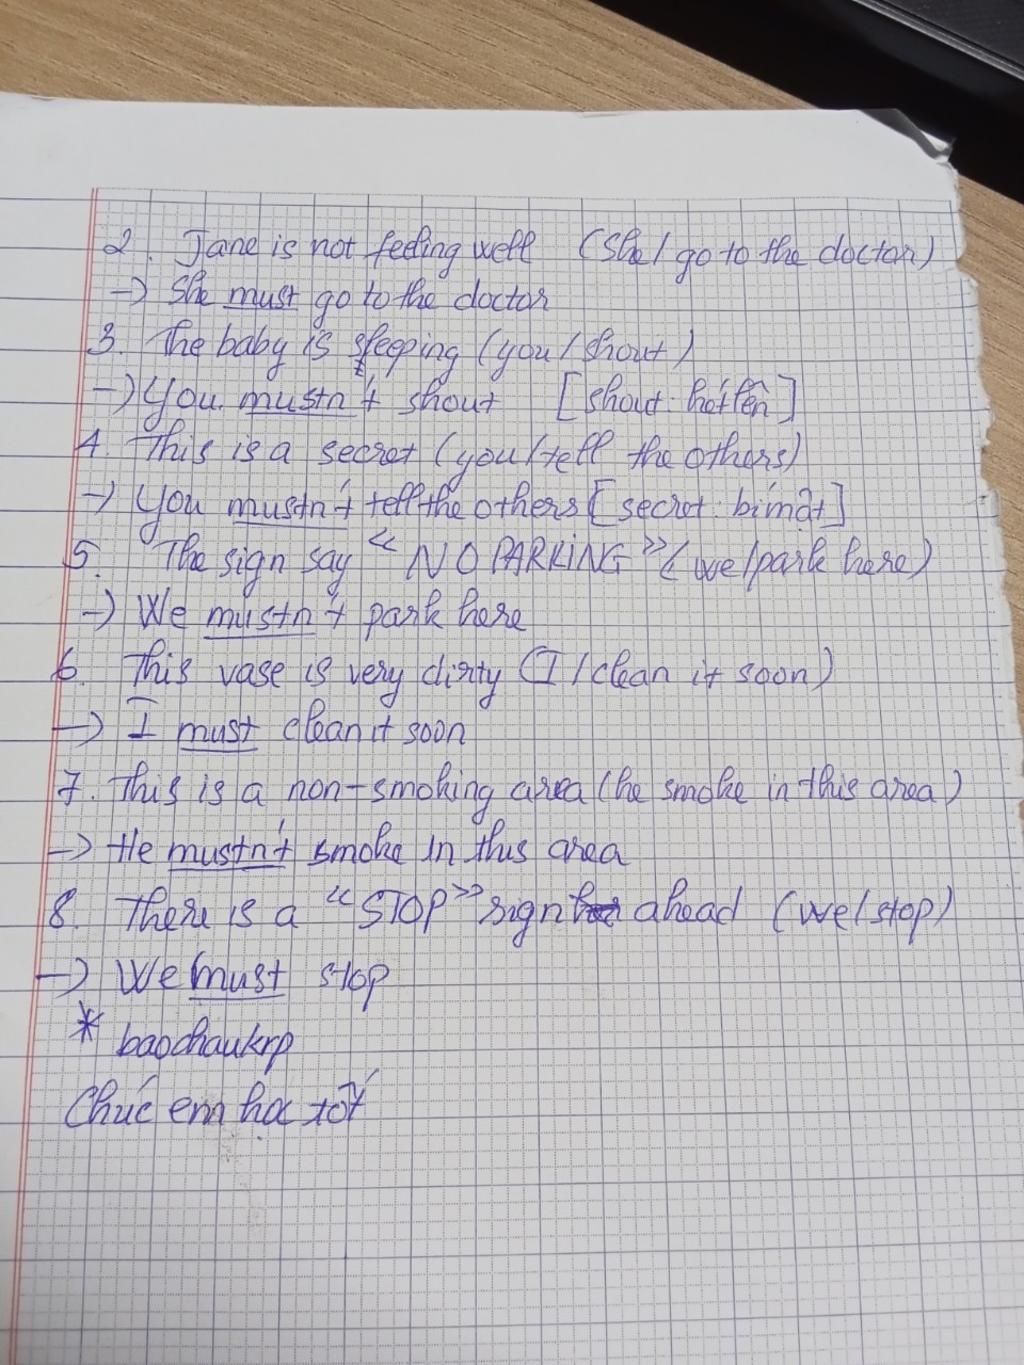 2. Jane is not feeling well (she/ go to the doctor)
-> She must go to the doctor
3. The baby is sleeping (you/shout)
-> You mustn't shout [shout: hét lên]
4. This is a secret (you/tell the others)
-> You mustn't tell the others [secret: bí mật]
5. The sign say "NO PARKING" (we/park here)
-> We mustn't park here
6. This vase is very dirty (I/clean it soon)
-> I must clean it soon
7. This is a non-smoking area (he smoke in this area)
-> He mustn't smoke in this area
8. There is a "STOP" sign ahead (we/stop)
-> We must stop
* baochaukrp
Chúc em học tốt